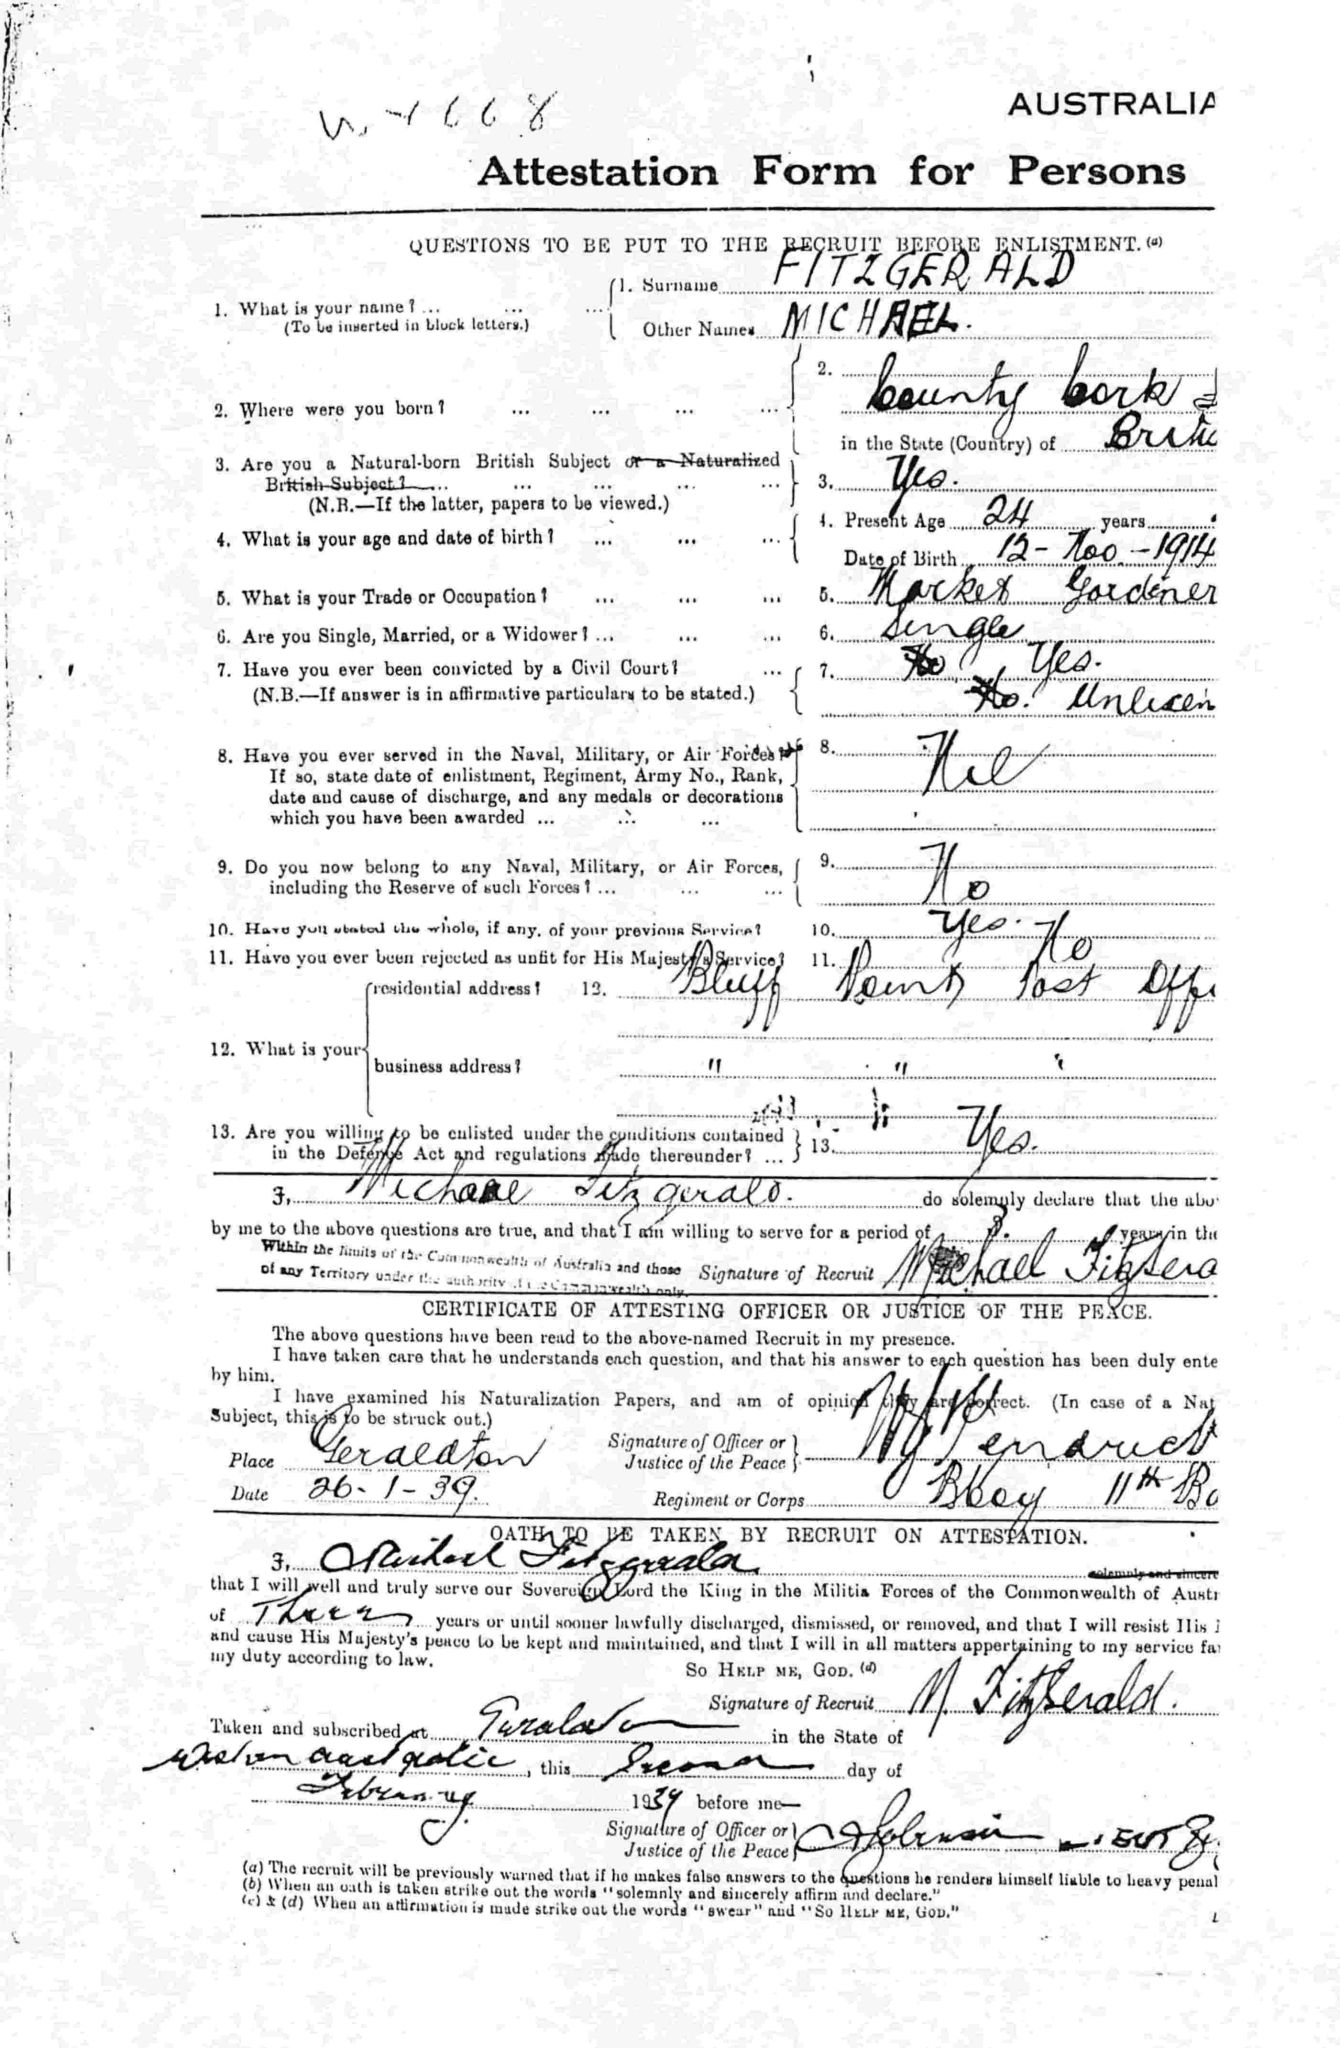 AUSTRALIA
Attestation Form for Persons
QUESTIONS TO BE PUT TO THE RECRUIT BEFORE ENLISTMENT.(a)
1. What is your name? ... ... ... 1. Surname FITZGERALD
(To be inserted in block letters.) Other Names MICHAEL.
2.
2. Where were you born? ... ... ... ... County Cork
in the State (Country) of Britic
3. Are you a Natural-born British Subject or a Naturalized
British Subject? ... ... ... ... ... 3. Yes.
(N.B.—If the latter, papers to be viewed.)
4. What is your age and date of birth? ... ... ... 4. Present Age 24 years
Date of Birth 12-Nov-1914
5. What is your Trade or Occupation? ... ... ... 5. Market Gardiner
6. Are you Single, Married, or a Widower? ... ... ... 6. Single
7. Have you ever been convicted by a Civil Court? ... 7. No Yes.
(N.B.—If answer is in affirmative particulars to be stated.) No. Unlicen
8. Have you ever served in the Naval, Military, or Air Forces? 8. Nil
If so, state date of enlistment, Regiment, Army No., Rank,
date and cause of discharge, and any medals or decorations
which you have been awarded ... ... ...
9. Do you now belong to any Naval, Military, or Air Forces, 9. No
including the Reserve of such Forces? ... ... ...
10. Have you stated the whole, if any, of your previous Service? 10. Yes.
11. Have you ever been rejected as unfit for His Majesty's Service? 11. No
residential address? 12. Bluff Point Post Offi
12. What is your
business address? " " "
13. Are you willing to be enlisted under the conditions contained
in the Defence Act and regulations made thereunder? ... 13. Yes.
I, Michael Fitzgerald. do solemnly declare that the abo
by me to the above questions are true, and that I am willing to serve for a period of 3. years in the
Within the limits of the Commonwealth of Australia and those
of any Territory under the authority of the Commonwealth only. Signature of Recruit Michael FitzGera
CERTIFICATE OF ATTESTING OFFICER OR JUSTICE OF THE PEACE.
The above questions have been read to the above-named Recruit in my presence.
I have taken care that he understands each question, and that his answer to each question has been duly ente
by him.
I have examined his Naturalization Papers, and am of opinion they are correct. (In case of a Nat
Subject, this is to be struck out.)
Place Geraldton Signature of Officer or
Justice of the Peace
Date 26-1-39. Regiment or Corps B Coy 11th Ba
OATH TO BE TAKEN BY RECRUIT ON ATTESTATION.
I, Michael Fitzgerald solemnly and sincere
that I will well and truly serve our Sovereign Lord the King in the Militia Forces of the Commonwealth of Austr
of Three years or until sooner lawfully discharged, dismissed, or removed, and that I will resist His
and cause His Majesty's peace to be kept and maintained, and that I will in all matters appertaining to my service fai
my duty according to law.
SO HELP ME, GOD. (d)
Signature of Recruit M. FitzGerald.
Taken and subscribed at Geraldton in the State of
Western Australia, this Second day of
February 1939 before me—
Signature of Officer or
Justice of the Peace
(a) The recruit will be previously warned that if he makes false answers to the questions he renders himself liable to heavy penal
(b) When an oath is taken strike out the words "solemnly and sincerely affirm and declare."
(c) & (d) When an affirmation is made strike out the words "swear" and "SO HELP ME, GOD."